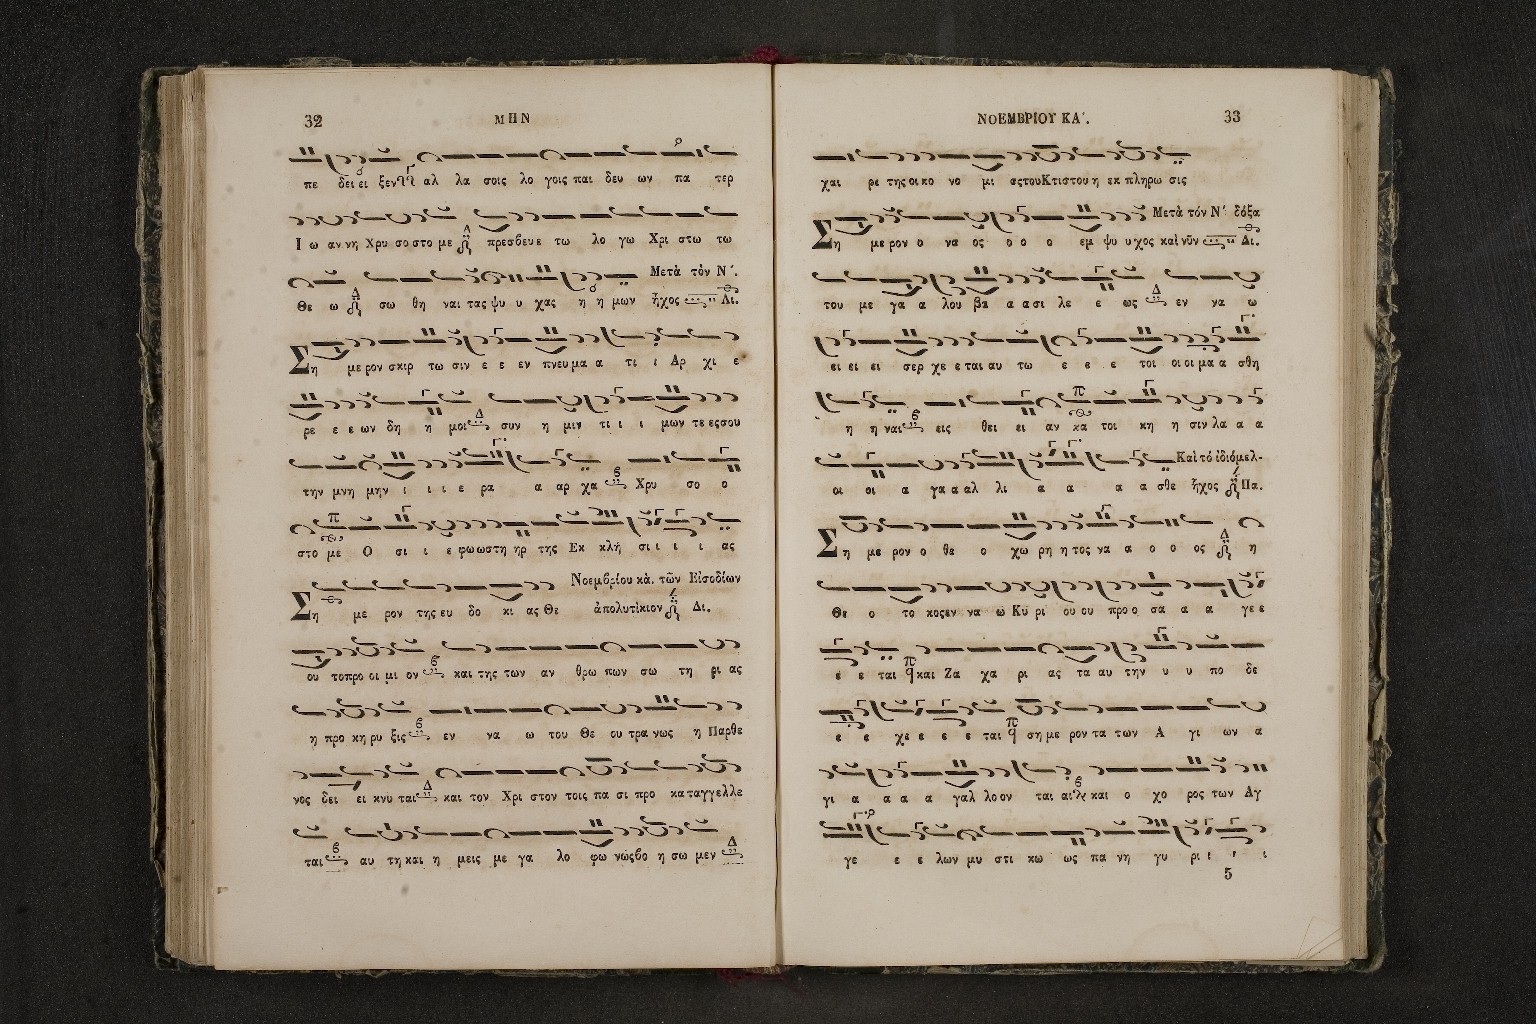 32
ΜΗΝ
πε δει ει ξεν αλ λα σοις λο γοις παι δευ ων πα τερ
Ι ω αν νη Χρυ σο στο με πρεσβευ ε τω λο γω Χρι στω τω
Μετὰ τὸν Ν΄.
Θε ω σω θη ναι τας ψυ υ χας η η μων ἦχος Δι.
Ση με ρον σκιρ τω σιν ε ε εν πνευ μα α τι ι Αρ χι ε
ρε ε ε ων δη η μοι συν η μιν τι ι ι μων τε ες σου
την μνη μην ι ι ι ε ρα α αρ χα Χρυ σο ο
στο με Ο σι ι ε φω ωστη ηρ της Εκ κλη σι ι ι ι ας
Νοεμβρίου κὰ. τῶν Εἰσοδίων
Ση με ρον της ευ δο κι ας Θε ἀπολυτίκιον Δι.
ου το προ οι μι ον και της των αν θρω πων σω τη ρι ας
η προ κη ρυ ξις εν να ω του Θε ου τρα νως η Παρθε
νος δει ει κνυ ται και τον Χρι στον τοις πα σι προ κα ταγγελλε
ται αυ τη και η μεις με γα λο φω νως βο η σω μεν
ΝΟΕΜΒΡΙΟΥ ΚΑ΄.
33
χαι ρε της οι κο νο μι ας του Κτιστου η εκ πληρω σις
Μετὰ τὸν Ν΄ δόξα
Ση με ρον ο να ος ο ο ο εμ ψυ υ χος καὶ νῦν Δι.
του με γα α λου βα α α σι λε ε ως εν να ω
ει ει ει σερ χε ε ται αυ τω ε ε ε τοι οι οι μα α σθη
η η ναι εις θει ει αν κα τοι κη η σιν λα α α
Καὶ τό ἰδιόμελ-
οι οι α γα α αλ λι α α α α σθε ἦχος Πα.
Ση με ρον ο θε ο χω ρη η τος να α ο ο ος η
Θε ο το κος εν να ω Κυ ρι ου ου προ ο σα α α γε ε
ε ε ται και Ζα χα ρι ας τα αυ την υ υ πο δε
ε ε χε ε ε ε ται ση με ρον τα των Α γι ων α
γι α α α α γαλ λο ον ται αι και ο χο ρος των Αγ
γε ε ε λων μυ στι κω ως πα νη γυ ρι ι ι ι
5